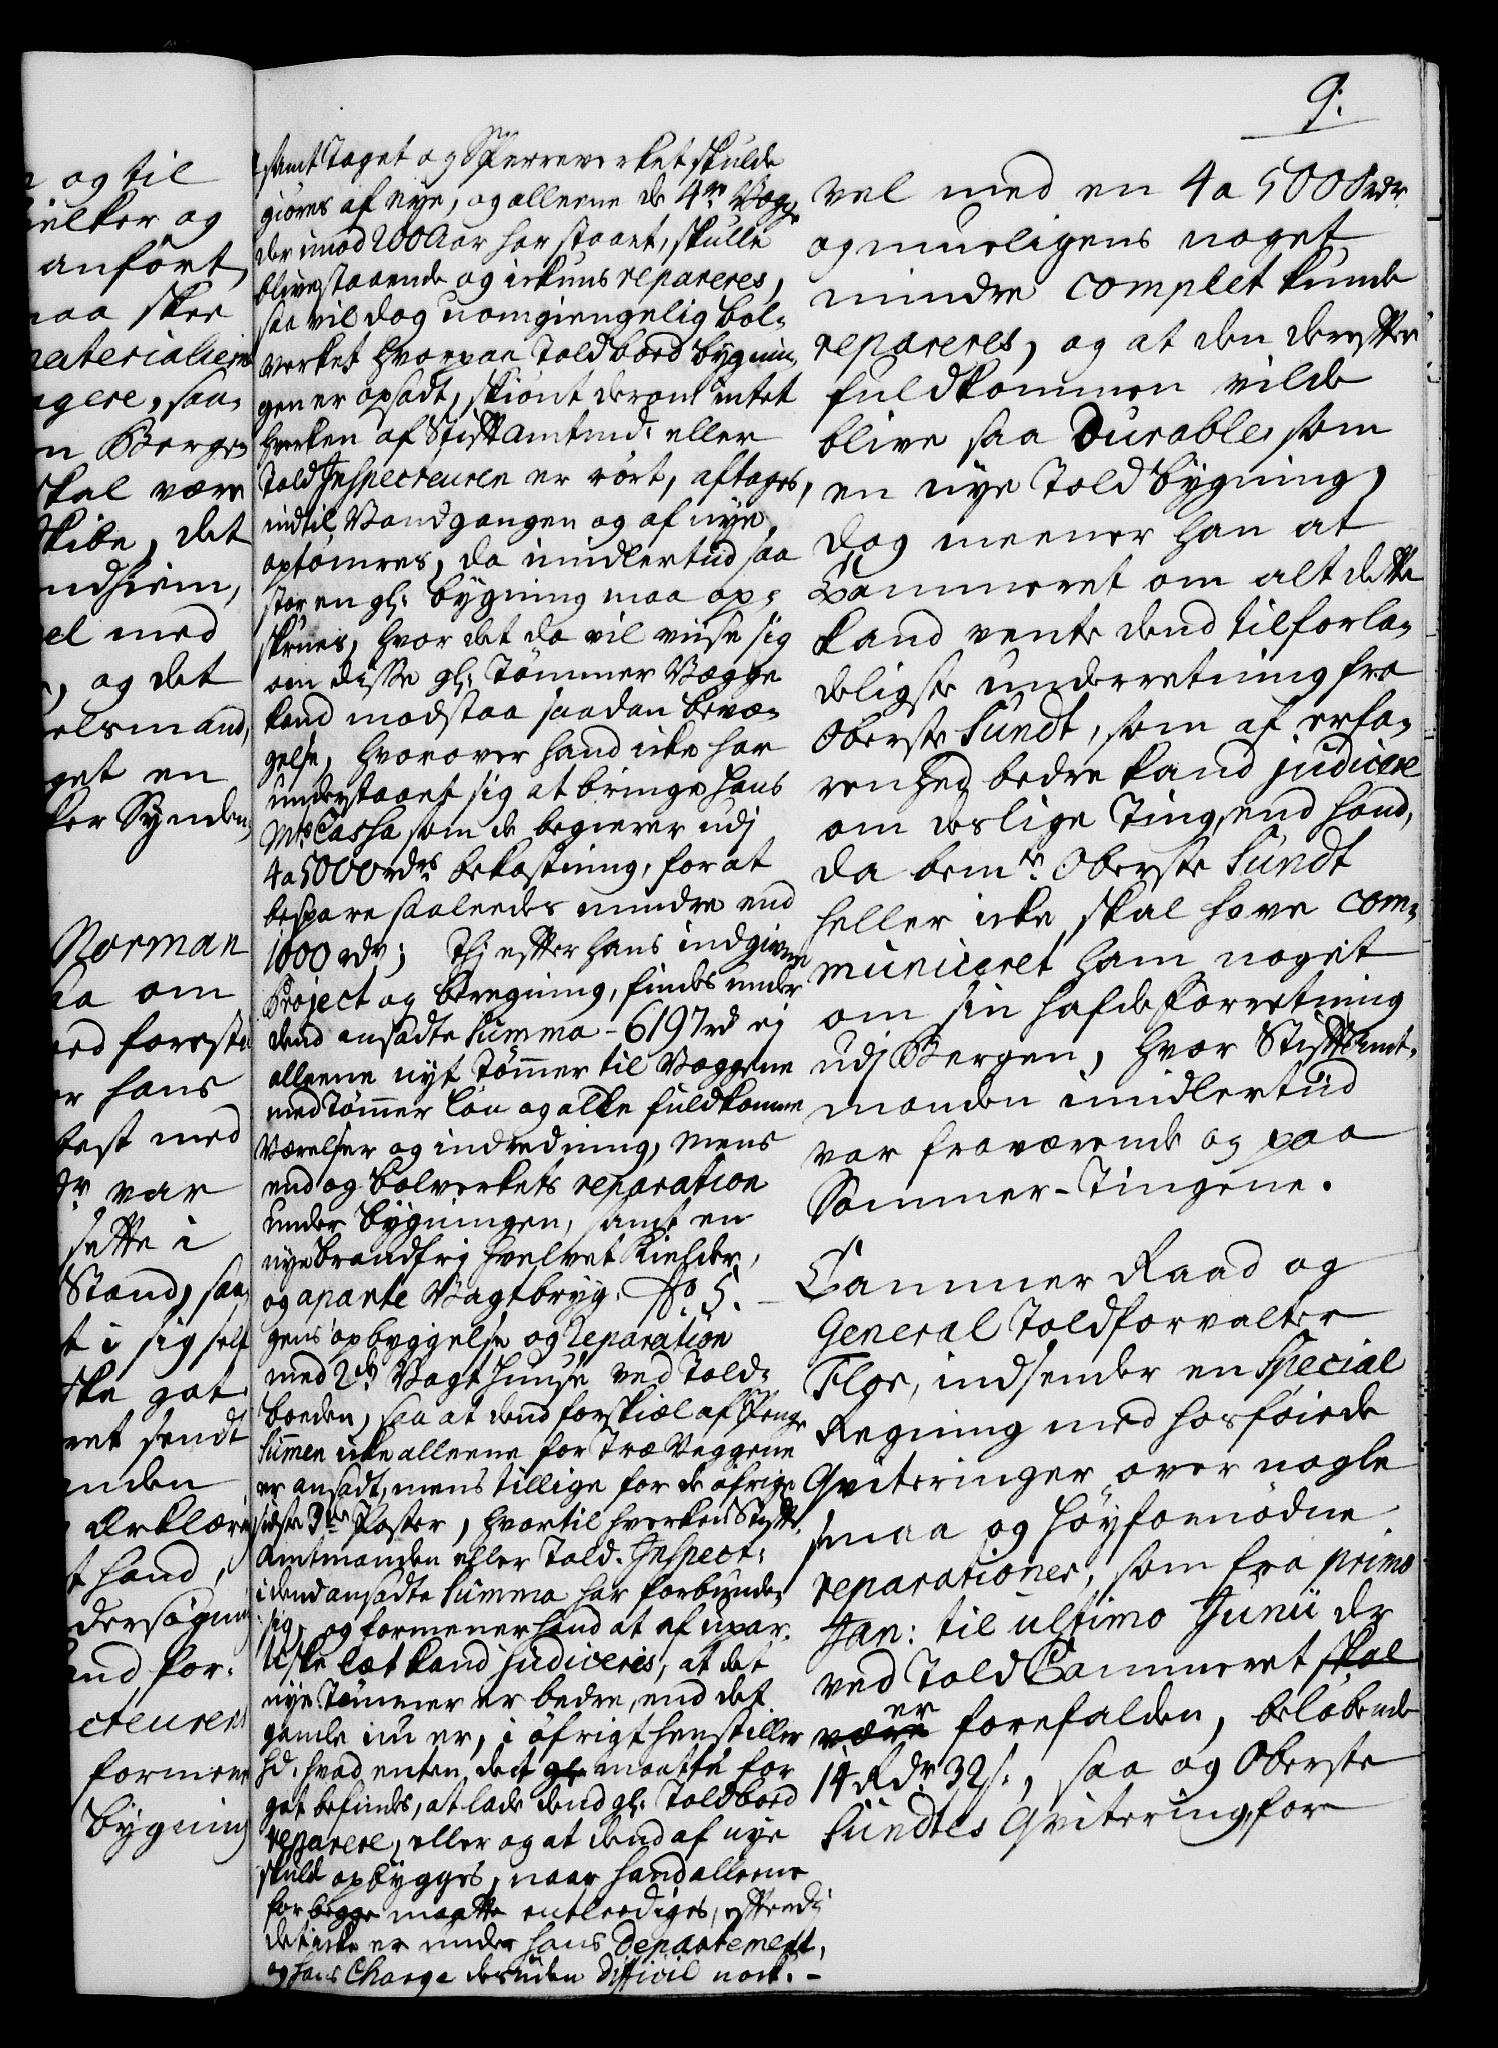 9.
n og til
ielker og
anfört,
maa skee
materialierne
gere, saa-
n Berge,
skal være
skibe, det
ndhiem,
el med
, og det
elsmand,
get en
ker Synden,
Norman
aa om
ed foresta
er hans
best med
dr var
sette i
Stand, saa
t i sig self
ske got
ret sendt
nden
Erklæri
t hand,
dersögni
nd for-
cteurens
formene
bygning
samt Taget og Sperreverket skulde
giöres af nye, og alleene de 4re Vægge
der imod 200 Aar har staaet, skulle
blive staaende og ickuns repareres,
saa vil dog uomgiengelig bol-
verket hvorpaa Toldbod bygnin-
gen er opsadt, skiönt derom intet
hverken af Stiftamtmd: eller
Told Inspecteuren er rört, aftages,
indtil Vandgangen og af nye
optömres, da imidlertid saa
stor en gl: bygning maa op-
skrues, hvor det da vil viise sig
om disse gl: Tömmer Vægge
kand modstaa saadan bevæ-
gelse, hvorover hand icke har
understaaet sig at bringe hans
Mts Cassa som de begierer udj
4 a 5000 rdrs bekostning, for at
bespare saaleedes mindre end
1000 rdr; Thi efter hans indgivne
Project og beregning, findes under
dend ansadte Summa - 6197 rd ej
alleene nyt Tömmer til Væggene
med Tömmer Lön og alle fuldkomne
Værelser og indredning, mens
end og bolverkets reparation
under bygningen, samt en
nye brandfrj hvelvet Kielder,
og aparte Vagtbryg: No. 5. -
gens opbyggelse og Reparation
med 2de Vagt huuse ved Told-
boeden, saa at dend forskiæl af Penge
Summen icke alleene for Træ Veggene
er ansadt, mens tillige for de öfrige
sidste 3de Poster, hvortil hverken Stifts
Amtmanden eller Told-Inspect:
i dend ansadte Summa har forbunden
sig, og formener hand at af upar-
tiske let kand judiceres, at det
nye Tömmer er bedre, end det
gamle nu er, i öfrigt henstiller
hd. hvad enten det gl: maatte for
got befindes, at lade dend gl: Toldbod
reparere, eller og at dend af nye
skulde opbygges, naar hand alleene
for begge maatte entleediges, efterdj
det icke er under hans Departement,
og hans Charge desuden difficil nock. -
vel med en 4 a 5000 rdr
og mueligens noget
mindre complet kunde
repareres, og at den derefter
fuldkommen vilde
blive saa Durable som
en nye Told bygning,
dog meener han at
Cammeret om alt dette
kand vente dend tilforla-
deligste underretning fra
Oberste Sundt, som af erfa-
renhed bedre kand judicere
om deslige Ting, end hand,
da bemte Oberste Sundt
heller icke skal have com-
municeret ham noget
om sin hafde Forretning
udj Bergen, hvor Stiftamt-
manden imidlertiid
var fraværende og paa
Sommer-Tingene.
Cammer Raad og
General Toldforvalter
Flor, indsender en Special
Regning med hosföiede
Qviteringer over nogle
smaa og höyfornödne
reparationer, som fra primo
Jan: til ultimo Junii dr
ved Told Cammeret skal
være er forefalden, belöbende
14 Rdr 32 s., saa og Oberste
Sundtes Qvitering, for